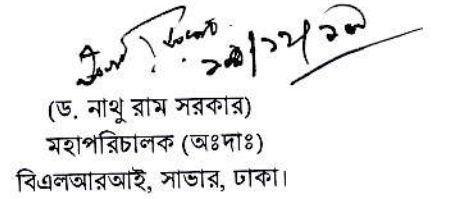 (ড. নাথু রাম সরকার)
মহাপরিচালক (অঃদাঃ)
বিএলআরআই, সাভার, ঢাকা।